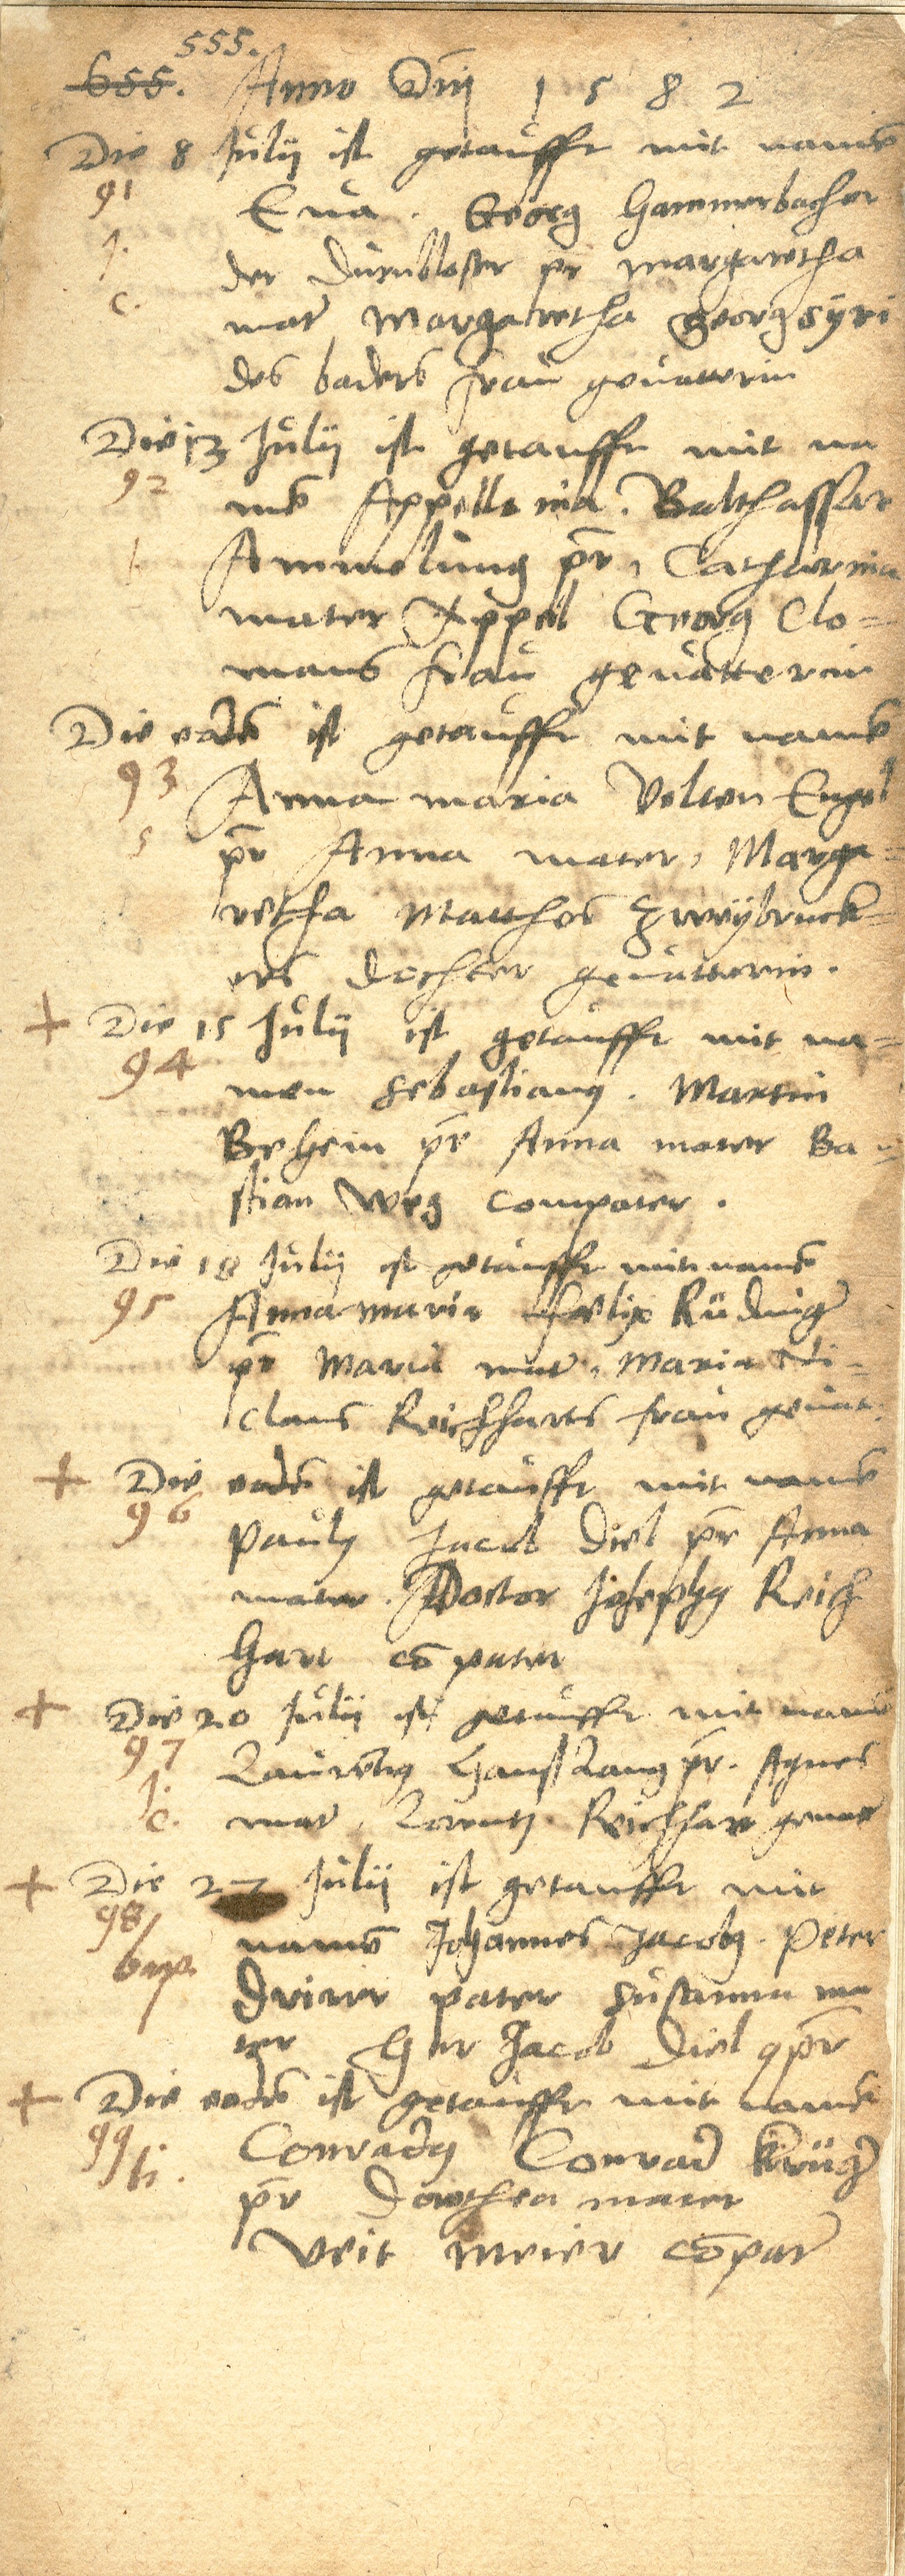 555.
655. Anno Dnj 1582
Die 8 Julij ist getaufft mit namē
91 Eua. Georg Hammerbacher
j. der Durnbloser pr margaretha
c. mat̄ Margaretha Georg Syri
des baders frau geuatterin
Die 13 Julij ist getaufft mit na
92 mē Appellonia. Balthassar
Ammelung pr̄, Catharina
mater Appel Georg Clo=
mans frau geuatterin
Die eodē ist getaufft mit namē
93 Anna maria Velten Engel
s pr̄ Anna mater, Marga=
retha Matthes Zweybruck=
ers dochter geuatterin.
+ Die 15 Julij ist getaufft mit na=
94 men Sebastianus. Martin
Behem pr̄ Anna mater Ba=
stian Weg Compater.
Die 18 Julij ist getaufft mit namē
95 Anna maria Felix Rüdinger
pr̄ Maria mat̄, Maria Ni=
claus Reichharts frau geuat.
+ Die eodē ist getaufft mit namē
96 Paulus Jacob Diel pr̄ Anna
mater. Doctor Josephus Reich
hart cō pater
+ Die 20 Julij ist getaufft mit namē
97 Laurentius Hanß Lang pr̄. Agnes
j. c. mat̄. Lorentz Reichhart geuat̄
+ Die 27 Julij ist getaufft mit
98 namē Johannes Jacobus. Peter
pater Susanna ma
ter Her Jacob Diel 9pr̄
+ Die eodē ist getaufft mit namē
99 Conradus Conrad Krüger
pr̄ Dorothea mater
Veit Meier cōpat̄